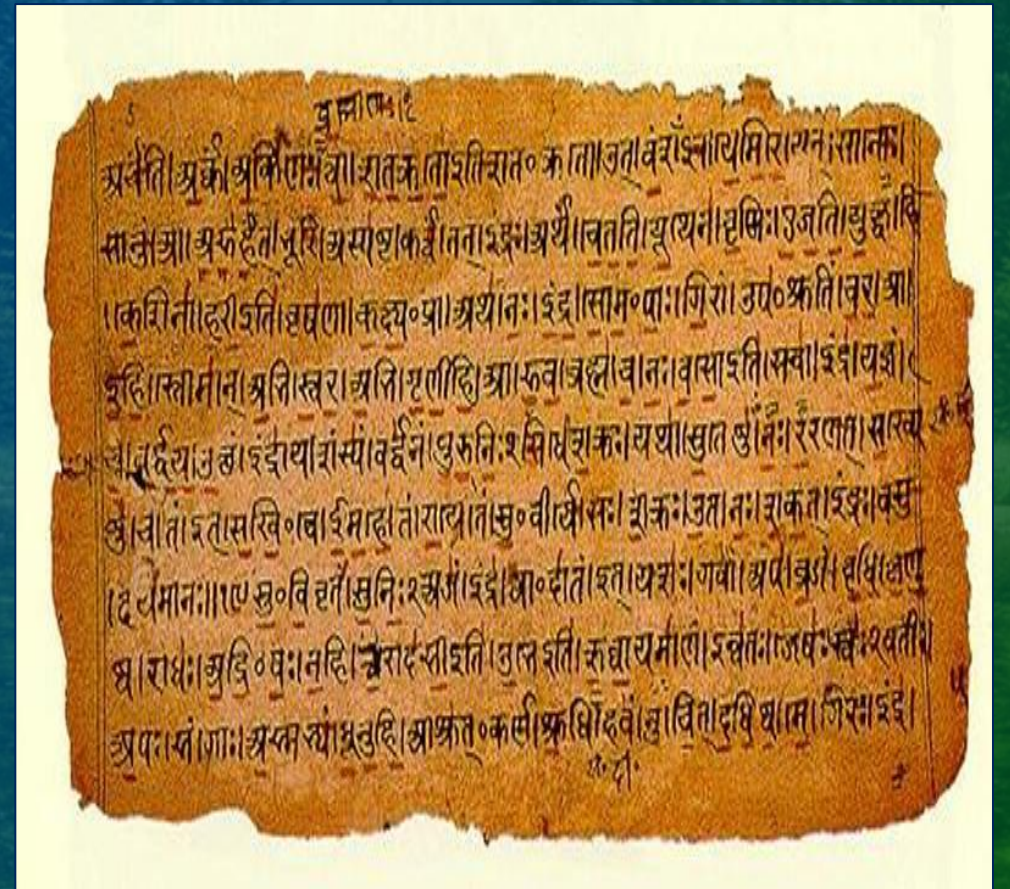 ब्रह्माणः
अर्चंति।अर्कं।अर्किणः।त्वा।शतक्रतो इति शत०क्रतो।उत्।वंशंऽइव।येमिरे।यत्।सानोः।
सानुं।आ।अरुहत्।भूरि।अस्पष्ट।कर्त्वं।तत्।इंद्रः।अर्थं।चेतति।यूथेन।वृष्णिः।एजति।युक्ष्व।हि
।केशिना।हरी इति।वृषणा।कक्ष्य०प्रा।अथ।नः।इंद्र।सोम०पाः।गिरां।उप०श्रुतिं।चर।आ।
इहि।स्तोमान्।अभि।स्वर।अभि।गृणीहि।आ।रुव।ब्रह्म।च।नः।वसो इति।सचा।इंद्र।यज्ञं।
च।वर्द्धय।उक्थं।इंद्राय।शंस्यं।वर्द्धनं।पुरुनिःऽसिधे।शक्रः।यथा।सुतेषु।नः।ररणत्।सख्ये
षु।च।तं।इत्।सखि०त्वे।ईमहे।तं।राये।तं।सु०वीर्ये।सः।शक्रः।उत।नः।शकत्।इंद्रः।वसु
।दयमानः॥१९।सु०विवृतं।सुनिःऽअजं।इंद्र।त्वा०दातं।इत्।यशः।गवां।अप।व्रजं।वृधि।कृणु
ष्व।राधः।अद्रि०वः।नहि।त्वा।रोदसी इति।उभे इति।ऋघायमाणं।इन्वतः।जेषः।स्वःऽवतीः।
अपः।सं।गाः।अस्मभ्यं।धूनुहि।आश्रुत्०कर्ण।श्रुधि।हवं।नु।चित्।दधिष्व।मे।गिरः।इंद्र।